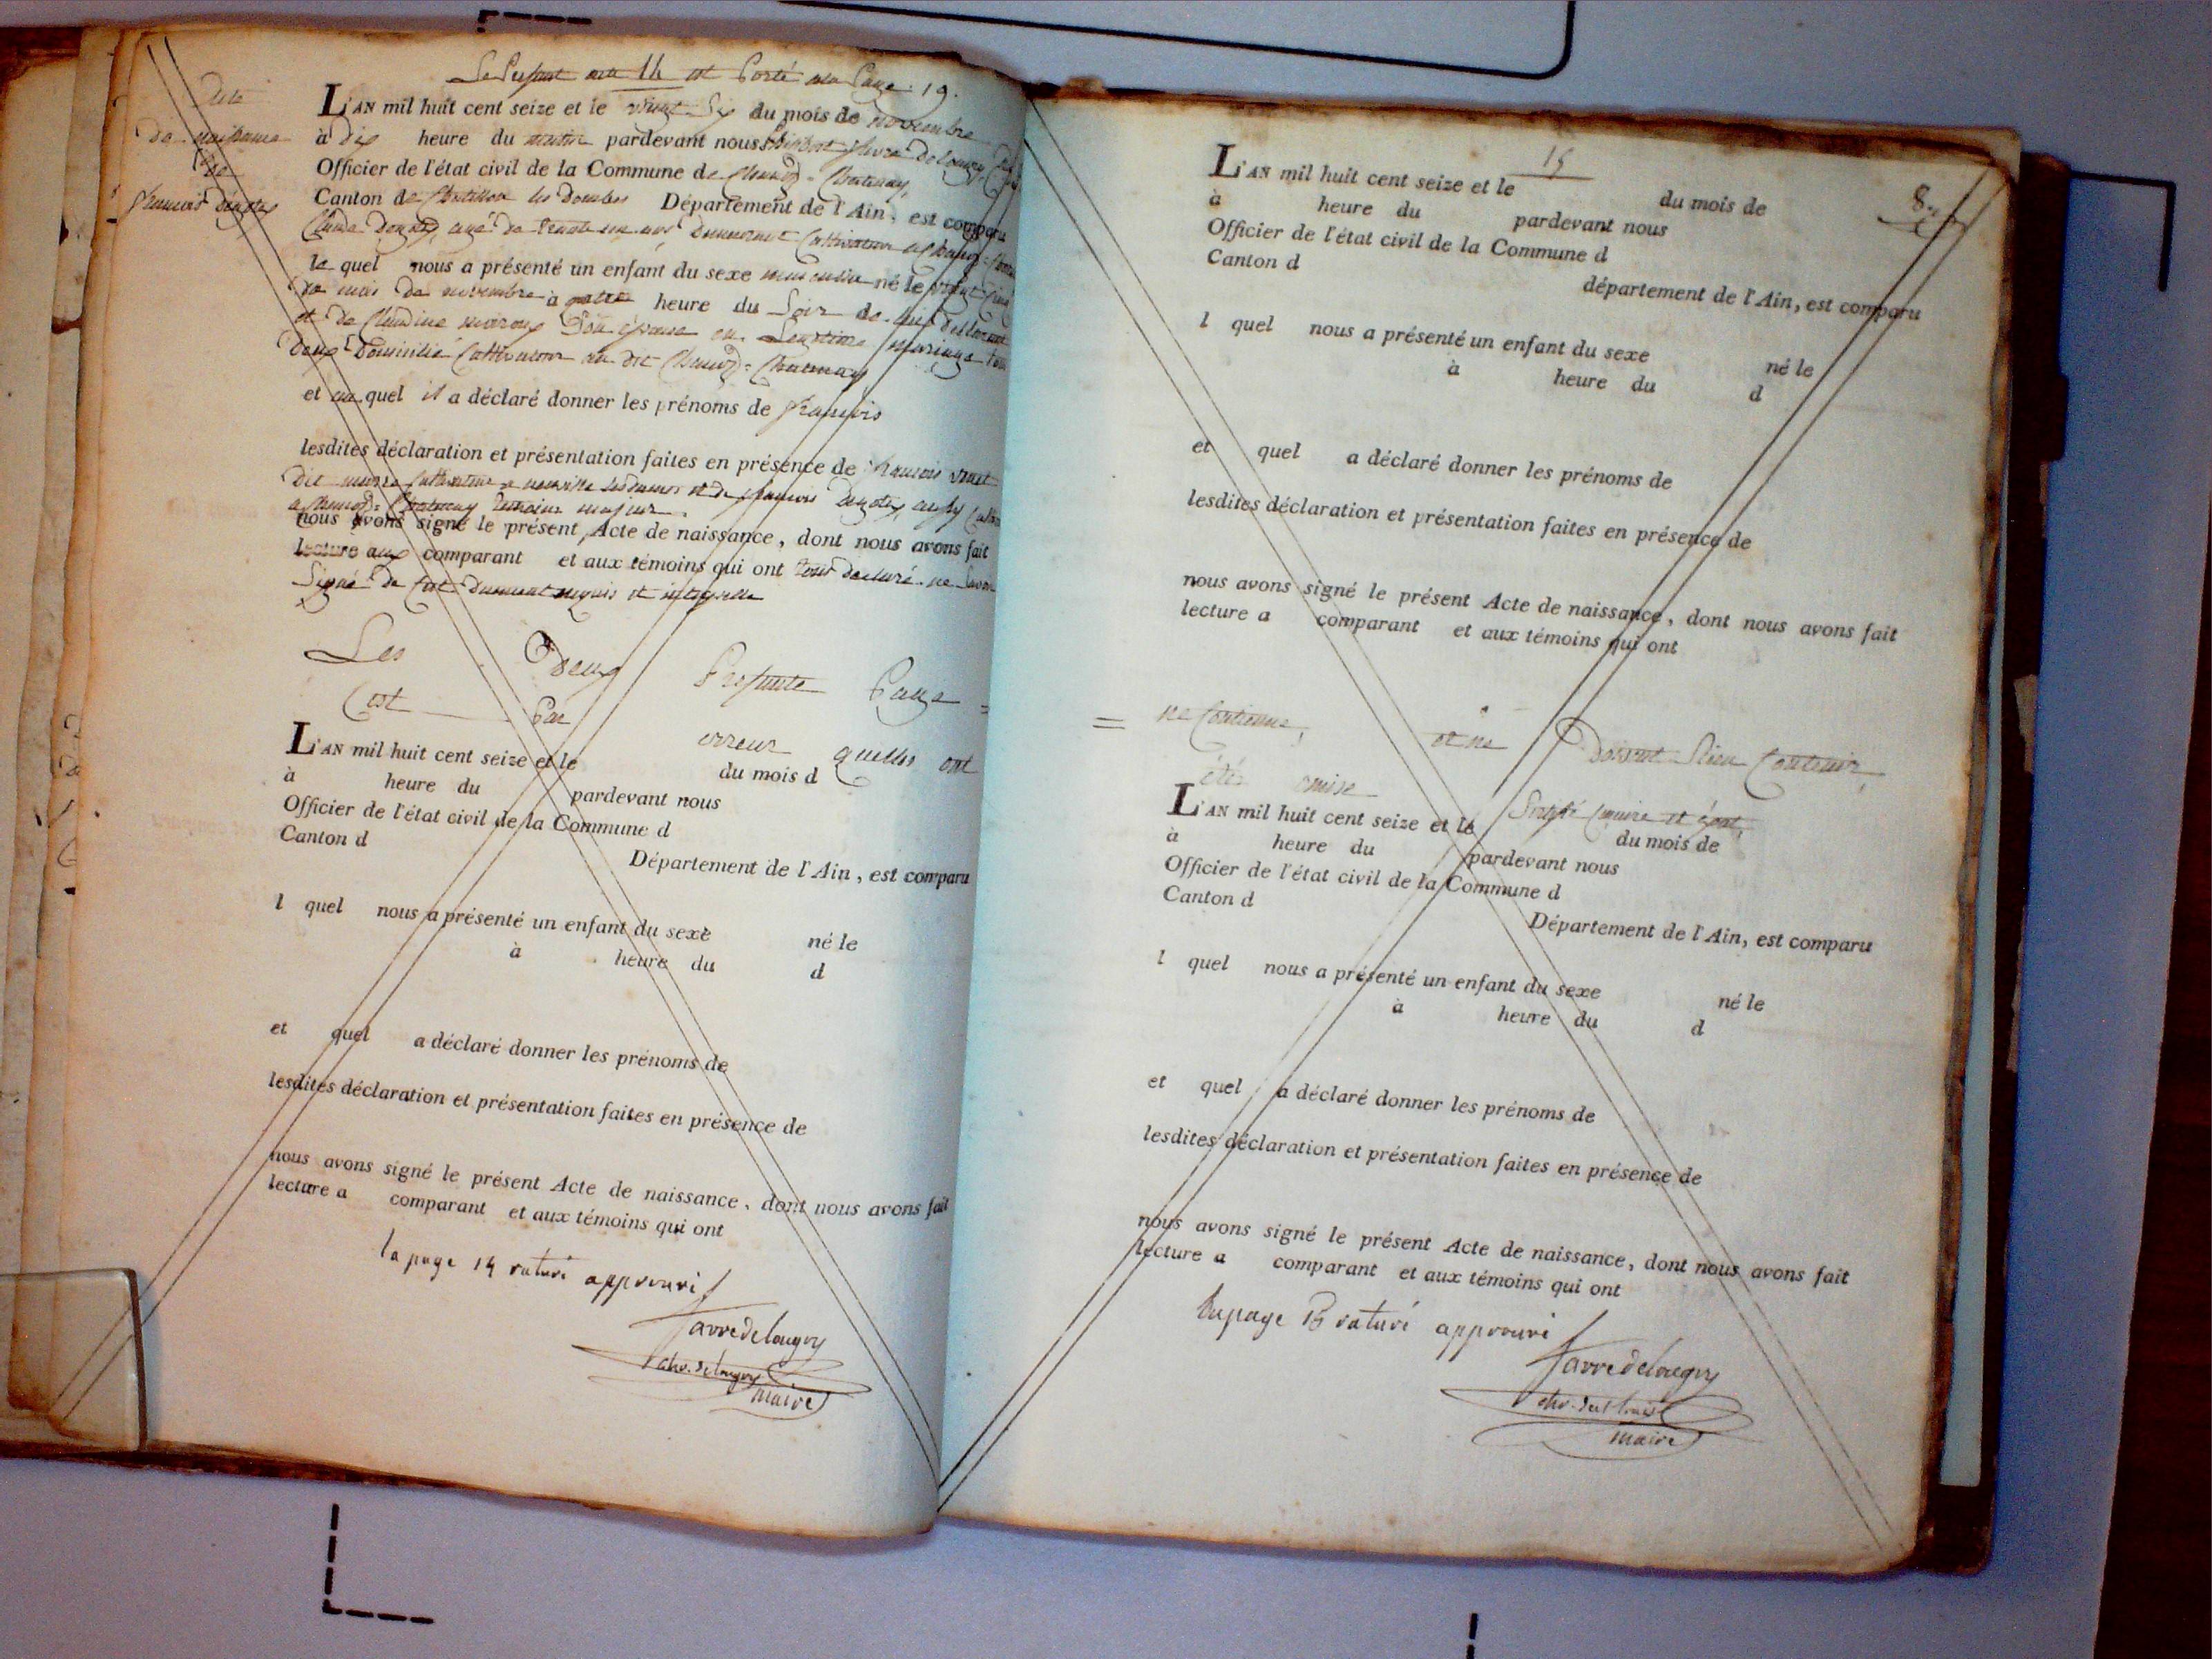 Le Present acte 14 est Porté a la Page 19.
Acte
de naissance
de
francois
L'AN mil huit cent seize et le vingt Six du mois de novembre
à dix heure du matin pardevant nous
Officier de l'état civil de la Commune de Chanoz = Chatenay,
Canton de Chatillon les Dombes Département de l'Ain, est comparu
Claude agé de Trente un ans Cultivateur a Chanoz =
le quel nous a présenté un enfant du sexe masculin né le vingt cinq
du mois de novembre à quatre heure du Soir de
et de Claudine Son épouse en Legitime mariage
Deux Domicilié Cultivateur au dit Chanoz = Chatenay
et au quel il a déclaré donner les prénoms de francois
lesdites déclaration et présentation faites en présence de francois
dit Cultivateur a et de francois
a Chanoz = Chatenay Temoins majeur.
nous avons signé le présent Acte de naissance, dont nous avons fait
lecture aux comparant et aux témoins qui ont tous declaré ne Savoir
Signé de Ce dument requis et interpellé
Les Deux Presente Page =
C'est Par erreur quelles ont
L'AN mil huit cent seize et le du mois d
à heure du pardevant nous
Officier de l'état civil de la Commune d
Canton d
Département de l'Ain, est comparu
l quel nous a présenté un enfant du sexe né le
à heure du d
et quel a déclaré donner les prénoms de
lesdites déclaration et présentation faites en présence de
nous avons signé le présent Acte de naissance, dont nous avons fait
lecture a comparant et aux témoins qui ont
la page 14 raturé approuvé
favre de longry
chv. de longry
maire
15
8.
L'AN mil huit cent seize et le du mois de
à heure du pardevant nous
Officier de l'état civil de la Commune d
Canton d
département de l'Ain, est comparu
l quel nous a présenté un enfant du sexe né le
à heure du d
et quel a déclaré donner les prénoms de
lesdites déclaration et présentation faites en présence de
nous avons signé le présent Acte de naissance, dont nous avons fait
lecture a comparant et aux témoins qui ont
= ne Contienne, et ne Doivent Rien Contenir,
été omise
L'AN mil huit cent seize et le du mois de
à heure du pardevant nous
Officier de l'état civil de la Commune d
Canton d
Département de l'Ain, est comparu
l quel nous a présenté un enfant du sexe né le
à heure du d
et quel a déclaré donner les prénoms de
lesdites déclaration et présentation faites en présence de
nous avons signé le présent Acte de naissance, dont nous avons fait
lecture a comparant et aux témoins qui ont
la page 15 raturé approuvé
favre de longry
maire